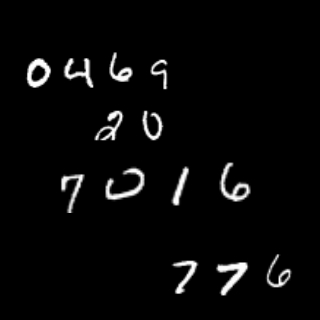 0469
20
7016
776